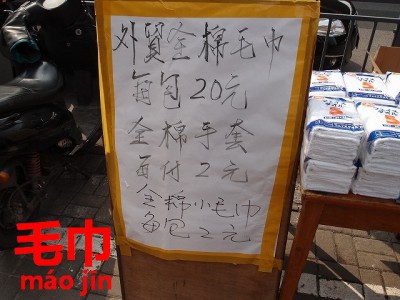 外貿全棉毛巾
每包20元
全棉手套
每付2元
全棉小毛巾
每包2元
毛巾
máo jīn